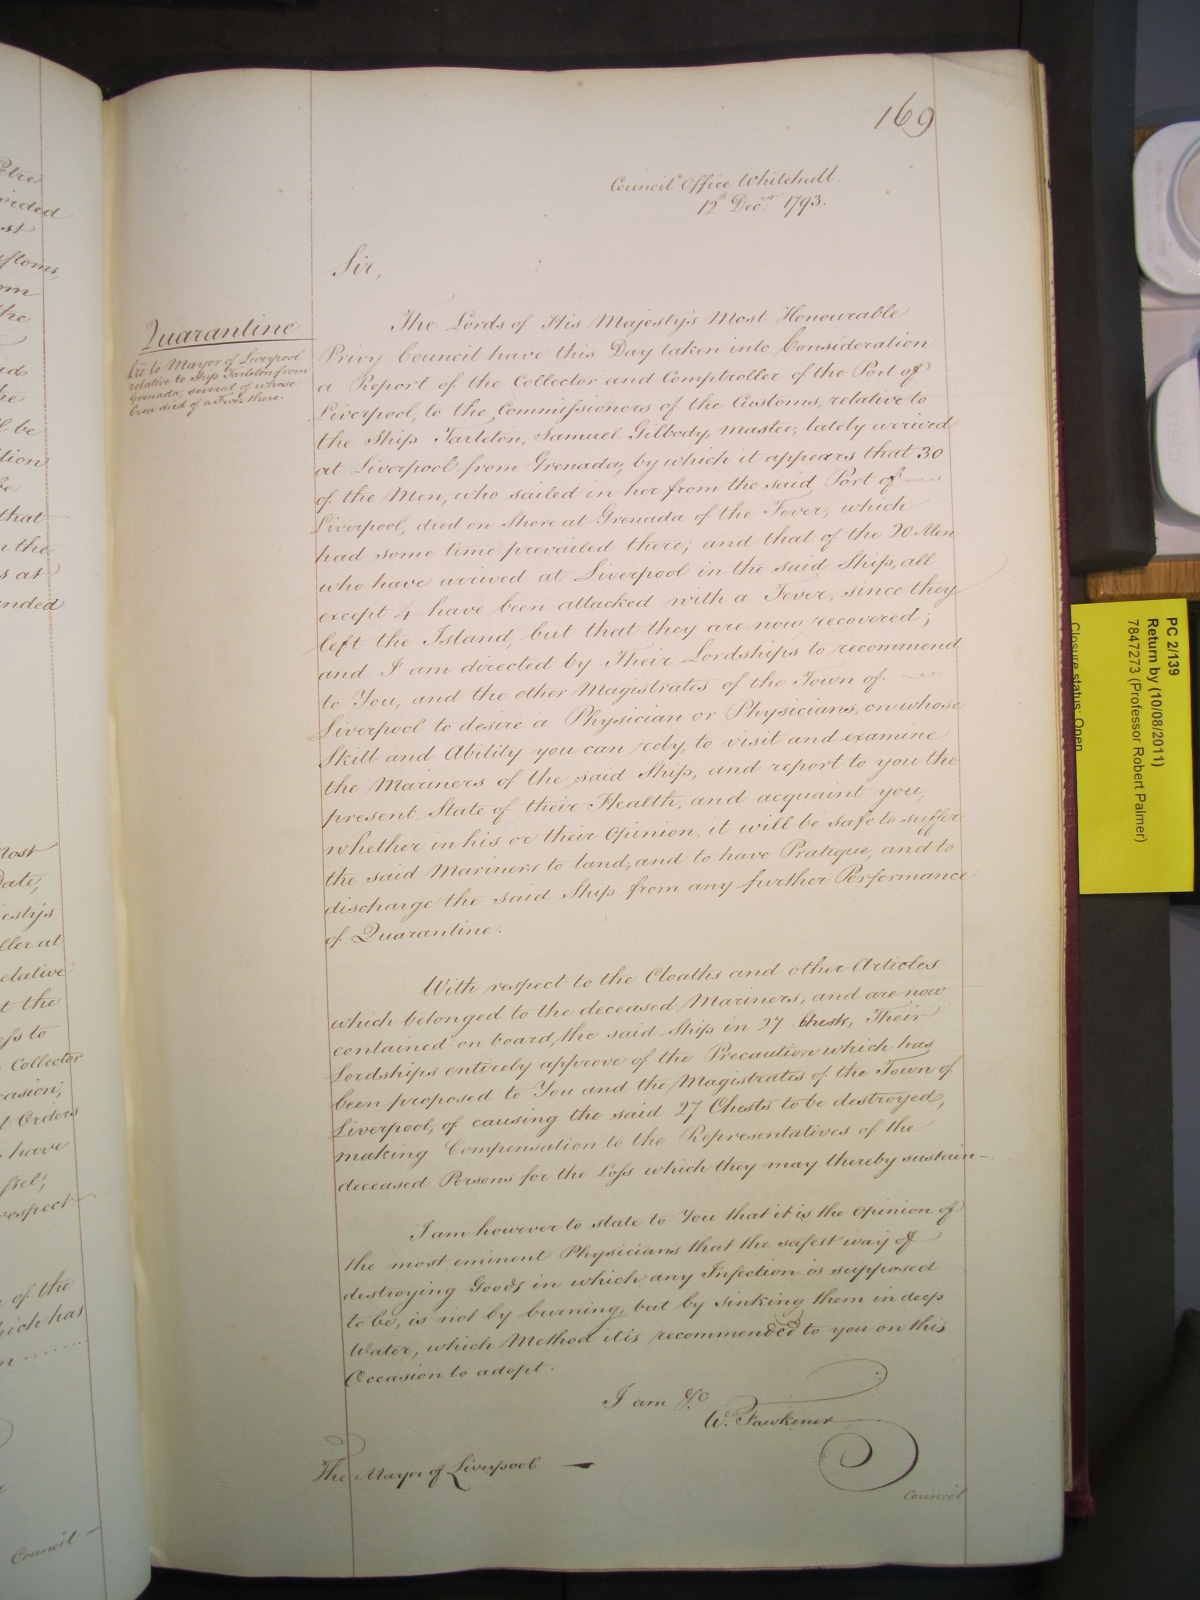 169
Council Office Whitehall
12th Decr. 1793.
Sir,
Quarantine
Lre to Mayor of Liverpool
relative to Ship Tarleton from
Grenada, several of whose
Crew died of a Fever there.
The Lords of His Majesty's Most Honourable
Privy Council have this Day taken into Consideration
a Report of the Collector and Comptroller of the Port of
Liverpool, to the Commissioners of the Customs, relative to
the Ship Tarleton, Samuel Gilbody, Master, lately arrived
at Liverpool from Grenada, by which it appears that 30
of the Men, who sailed in her from the said Port of
Liverpool, died on Shore at Grenada of the Fever, which
had some time prevailed there; and that of the 20 Men
who have arrived at Liverpool in the said Ship, all
except 4 have been attacked with a Fever, since they
left the Island, but that they are now recovered;
and I am directed by Their Lordships to recommend
to You, and the other Magistrates of the Town of
Liverpool to desire a Physician or Physicians, on whose
Skill and Ability you can rely, to visit and examine
the Mariners of the said Ship, and report to you the
present State of their Health, and acquaint you,
whether in his or their Opinion, it will be safe to suffer
the said Mariners to land, and to have Pratique, and to
discharge the said Ship from any further Performance
of Quarantine.
With respect to the Cloaths and other Articles
which belonged to the deceased Mariners, and are now
contained on board the said Ship in 27 Chests, Their
Lordships entirely approve of the Precaution which has
been proposed to You and the Magistrates of the Town of
Liverpool, of causing the said 27 Chests to be destroyed,
making Compensation to the Representatives of the
deceased Persons for the Loss which they may thereby sustain—
I am however to state to You that it is the Opinion of
the most eminent Physicians that the safest way of
destroying Goods in which any Infection is supposed
to be, is not by burning, but by sinking them in deep
Water, which Method it is recommended to you on this
Occasion to adopt.
I am &c
W. Fawkener
The Mayor of Liverpool —
Council
PC 2/139
Return by (10/08/2011)
7847273 (Professor Robert Palmer)
Closure status: Open
ost
ftoms,
om
the
be
ition
be
that
n the
s as
ended
Most
Date,
jesty's
ller at
elative
t the
ss to
Collector
casion;
t Orders
have
ssel;
respect
of the
hich has
Council —